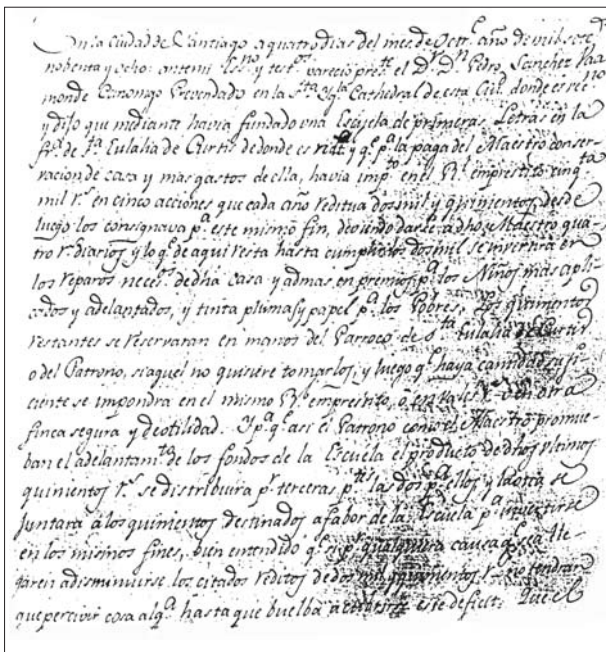 En la ciudad de Santiago a quatro dias del mes de Octre. año de mil sete
nobenta y ocho: antemi Essno. y testos. parecio preste. el Dr. Dn. Pedro Sanchez Vaa
monde Canonigo Prevendado en la Sta. Yga. Cathedral de esta Ciud. donde es vecno.
y dijo que mediante havia fundado una Escuela de primeras Letras en la
fra. de Sta. Eulalia de Curtis de donde es y qe. pa. la paga del Maestro conser-
racion de casa y mas gastos de ella, havia impto. en el Rl. emprestito cinqta.
mil rs. en cinco acciones que cada año reditua dos mil y quinientos, desde
luego los consignava pa. este mismo fin, deviendo darse a dho Maestro qua-
tro rs. diarios y lo qe. de aqui resta hasta cumplidos dos mil se invertira en
los reparos necess. de dha casa y admas en premios pa. los Niños mas apli-
cados y adelantados, y tinta plumas y papel pa. los Pobres, Los quinientos
restantes se reservaran en manos del Parroco de Sta. Eulalia de Curtis
o del Patrono, si aquel no quisiere tomarlos, y luego qe. haya cantidad sufi-
ciente se impondra en el mismo Rl. emprestito, o en Vales Rs. o en otra
finca segura y de otilidad. Y pa. qe. asi el Patrono como el Maestro promue-
ban el adelantamto. de los fondos de la Escuela el producto de dhos ultimos
quinientos rs. se distribuira pr. terceras ptes. las dos pa. ellos y la otra se
juntara â los quinientos destinados a fabor de la Escuela pa. invertirse
en los mismos fines, bien entendido qe. si pr. qualquiera causa qe. sea lle-
garen a disminuirse los citados reditos de dos mil y quinientos rs. no tendran
que percivir cosa alga. hasta que buelba a cubrirse este deficit: Que el